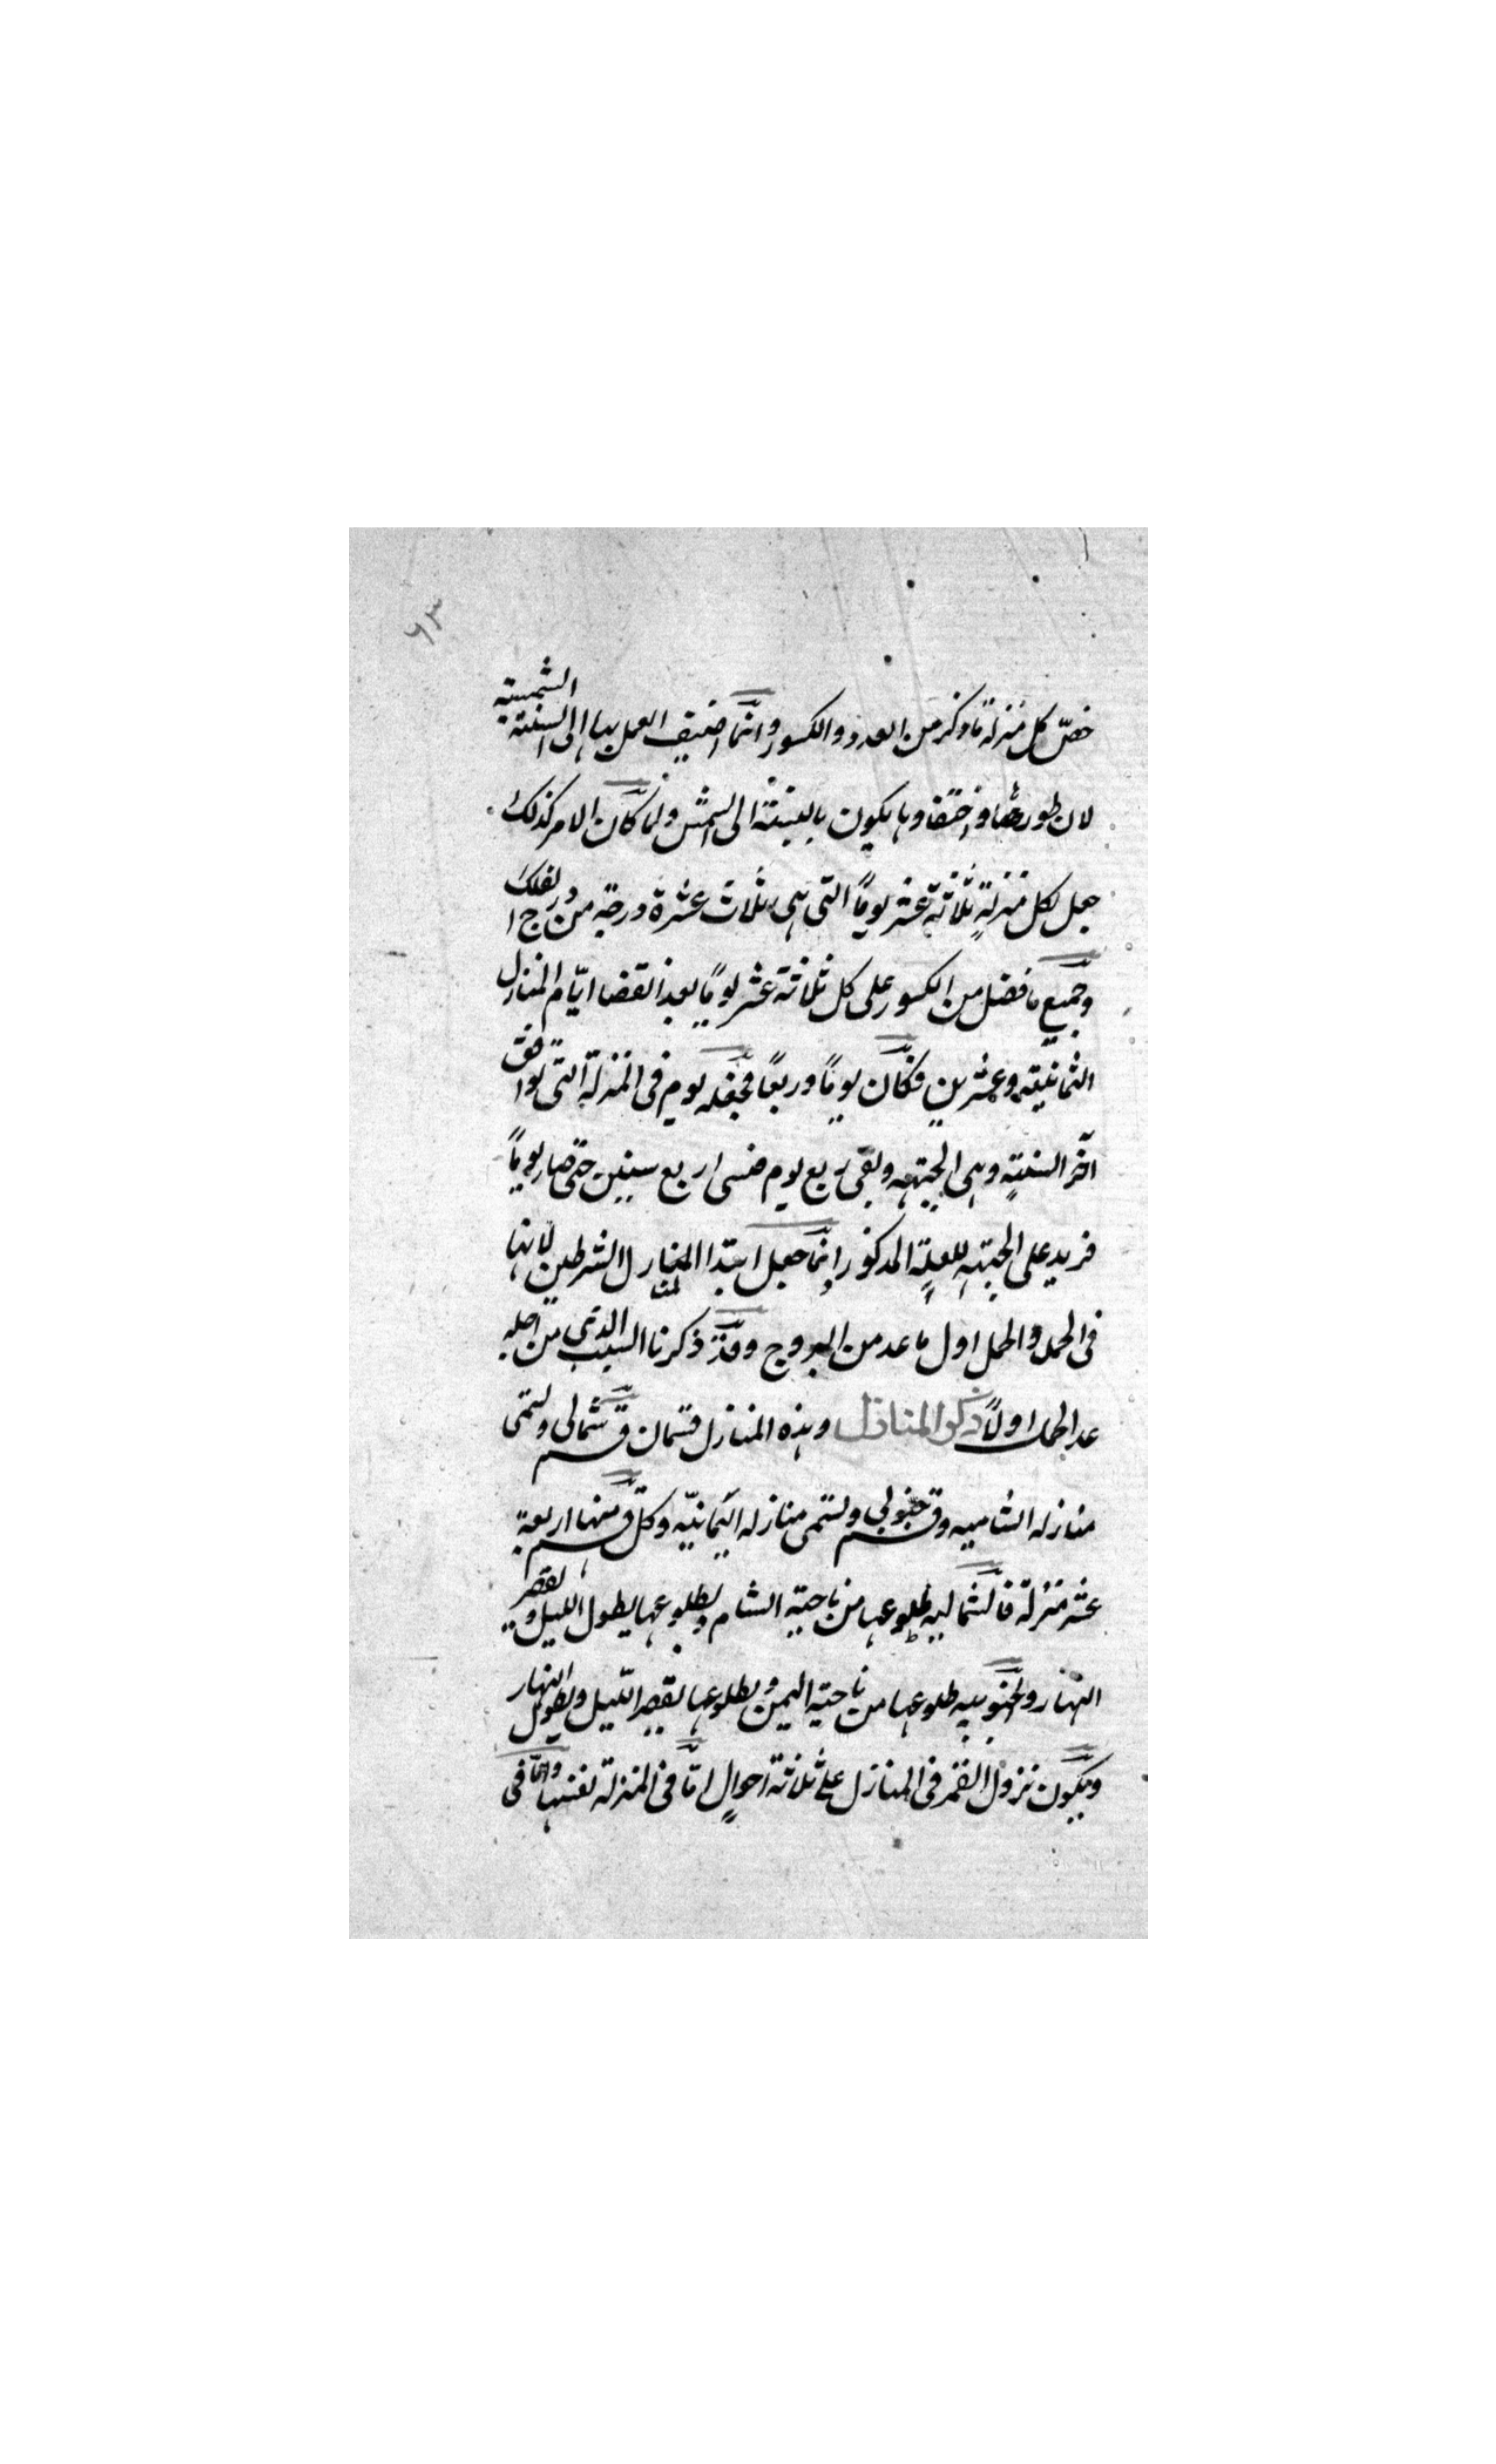 ٦٣
خص كل منزلة ما ذكر من العدد والكسور وانما اضيف العمل بها الى السنة الشمسية
لان ظهورها واختفاوها يكون بالنسبة الى الشمس ولما كان الامر كذلك
جعل لكل منزلةٍ ثلاثة عشر يوماً التى هى ثلاث عشرة درجة من درج الفلك
وجميع ما فضل من الكسور على كل ثلاثة عشر يوماً بعد انقضا ايّام المنازل
الثمانية وعشرين فكان يوماً وربعاً فجعله يوم فى المنزلة التى توافق
اخر السنةٍ وهى الجبهه وبقى ربع يوم فنسى اربع سنين حتى صار يوماً
فزيد على الجبهه للعلة المذكور وانما جعل ابتدا المنازل الشرطين لانها
فى الحمل والحمل اول ما عد من البروج وقد ذكرنا السبب الذى من اجله
عد الحمل اولاً ذكر المنازل وهذه المنازل قسمان قسم شمالى وتسمى
منازله الشاميه وقسم جنوبى وتسمى منازله اليمانيّه وكل قسم منها اربعة
عشر منزلة فالشماليه طلوعها من ناحية الشام وبطلوعها يطول الليل ويقصر
النهار والجنوبيه طلوعها من ناحية اليمن وبطلوعها يقصر الليل ويطول النهار
ويكون نزول القمر فى المنازل على ثلاثة احوالٍ امّا فى المنزلة نفسها وامّا فى